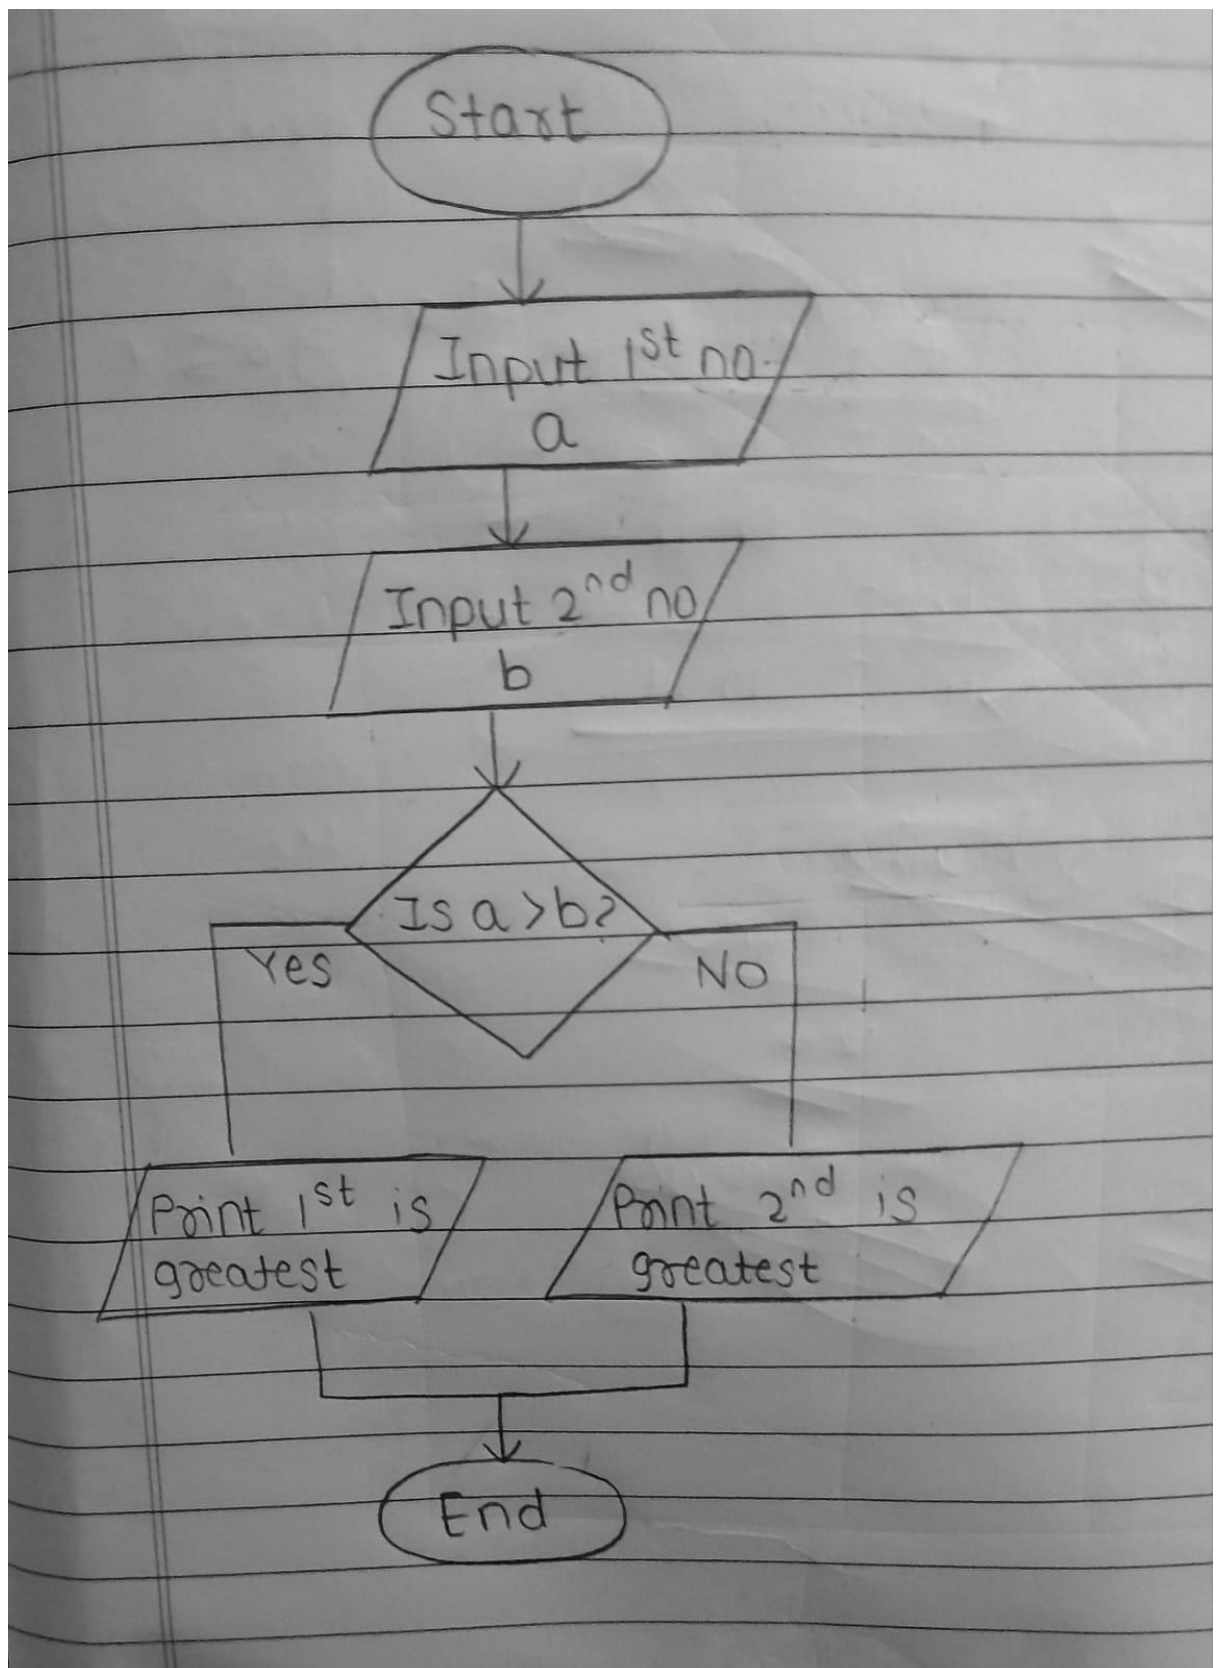 Start
Input 1st no.
a
Input 2nd no
b
Is a > b?
Yes
NO
Print 1st is
greatest
Print 2nd is
greatest
End